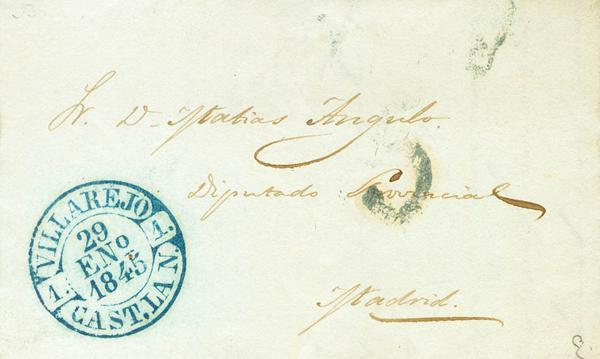 Sr. D. Matias Angulo.
Diputado Provincial
Madrid.
VILLAREJO
29
ENº
1845
1. CAST. LA N 1.